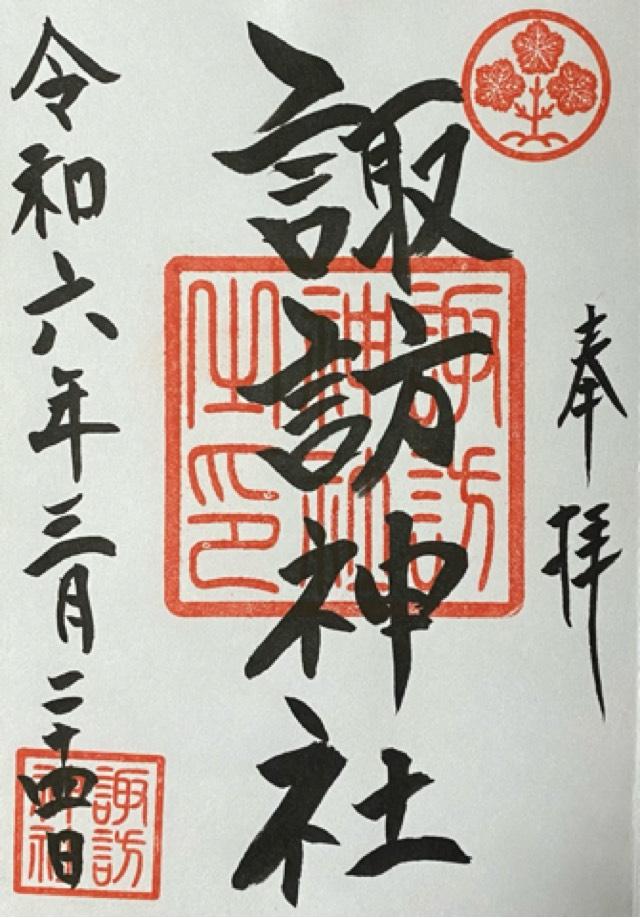 奉拝
諏訪神社
諏訪
神社
之印
令和六年三月二十四日
諏訪
神社